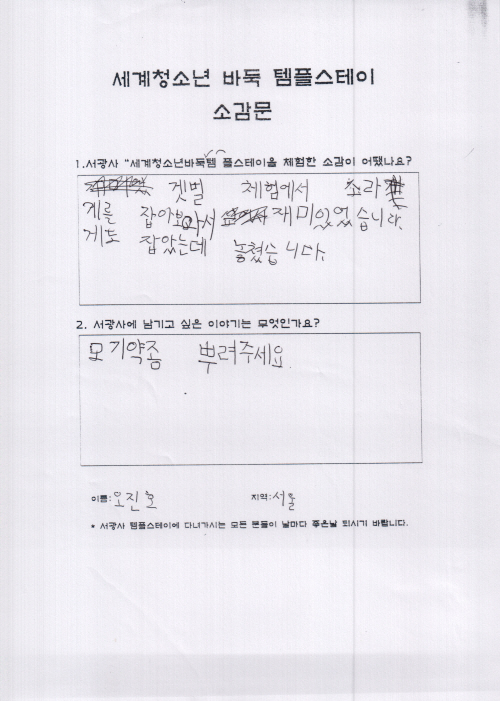 세계청소년 바둑 템플스테이
소감문
1.서광사 "세계청소년바둑템 플스테이을 체험한 소감이 어땠나요?
겟벌 체험에서 소라
게를 잡아보아서 재미있었습니다.
게도 잡았는데 놓쳤습니다.
2. 서광사에 남기고 싶은 이야기는 무엇인가요?
모기약좀 뿌려주세요.
이름:오진호 지역:서울
* 서광사 템플스테이에 다녀가시는 모든 분들이 날마다 좋은날 되시기 바랍니다.